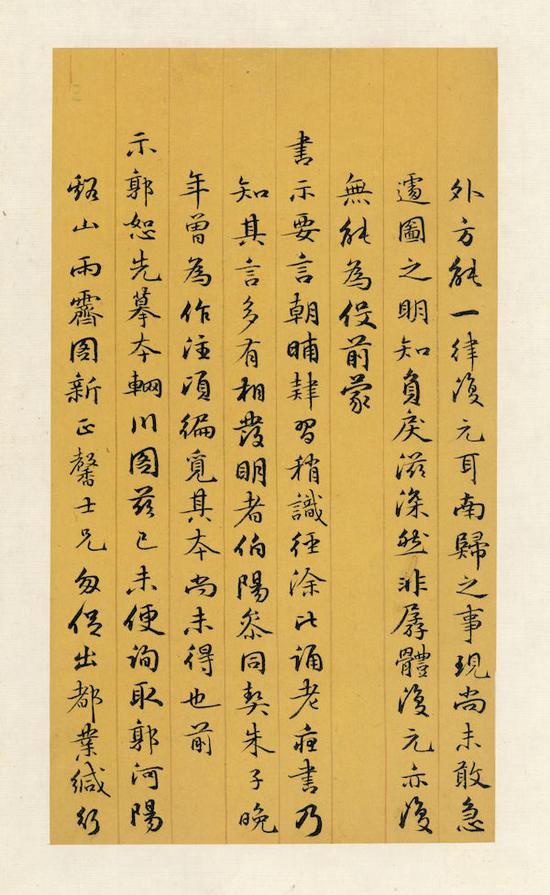 外方能一律復元耳南歸之事現尚未敢急
遽圖之明知負戾滋深然非孱體復元亦復
無能為役前蒙
書示要言朝晡肄習稍識徑涂比誦老莊書乃
知其言多有相發明者伯陽參同契朱子晚
年曾為作注項編覓其本尚未得也前
示郭恕先摹本輞川圖茲已未便詢取郭河陽
谿山雨霽圖新正馨士兄匆促出都業緘行